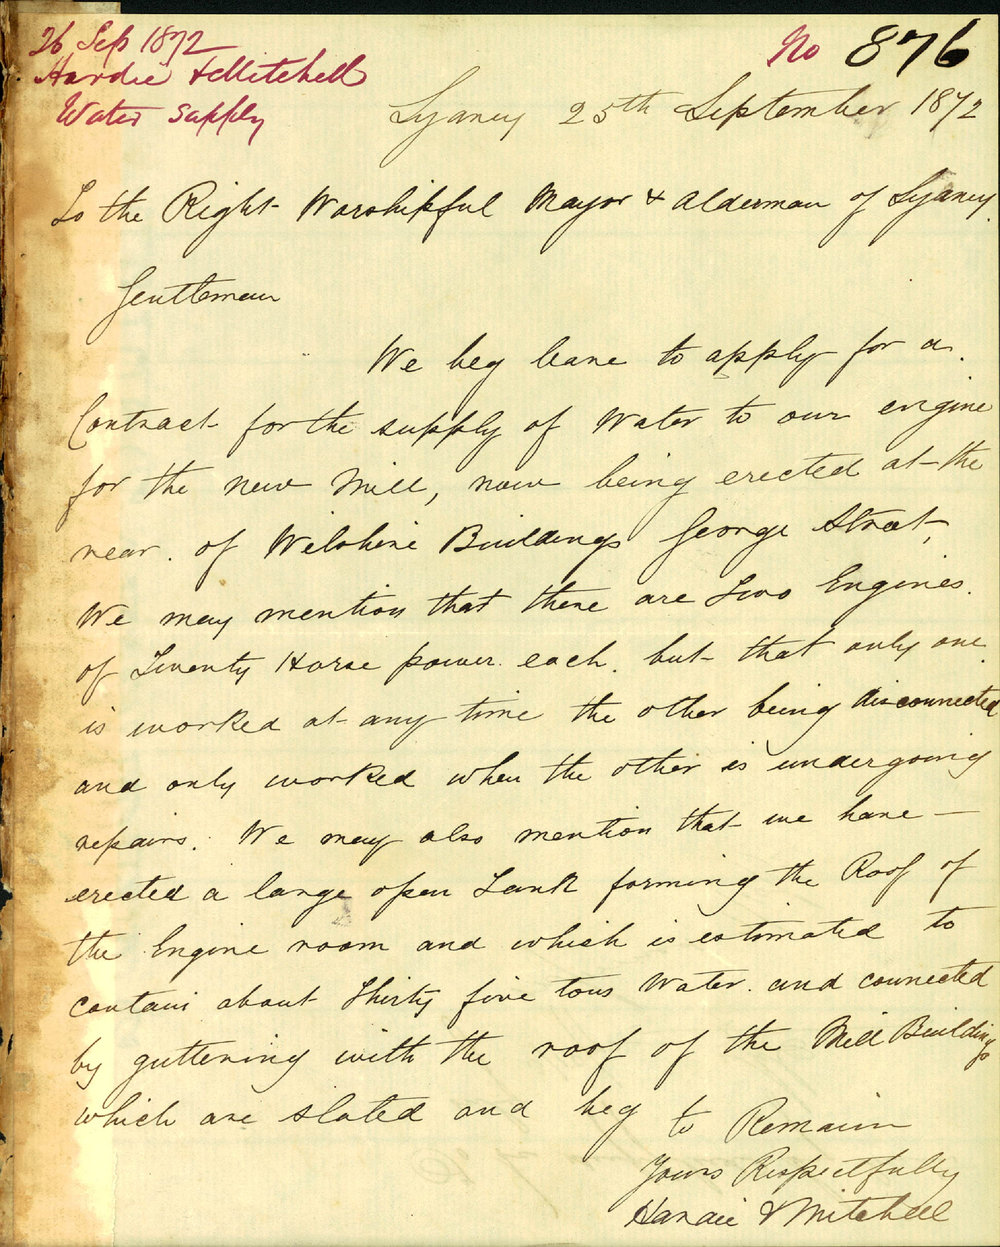 26 Sep 1872
Hardie & Mitchell
Water Supply
No 876
Sydney 25th September 1872
To the Right Worshipful Mayor & Alderman of Sydney.
Gentleman
We beg leave to apply for a
Contract for the supply of Water to our engine
for the new Mill, now being erected at the
rear of Wilshire Buildings George Street,
We may mention that there are Two Engines.
of Twenty Horse power each. but that only one
is worked at any time the other being disconnected
and only worked when the other is undergoing
repairs. We may also mention that we have —
erected a large open Tank forming the Roof of
the Engine room and which is estimated to
contain about Thirty five tons Water. and connected
by guttering with the roof of the Mill Buildings
which are slated and beg to Remain
Yours Respectfully
Hardie & Mitchell